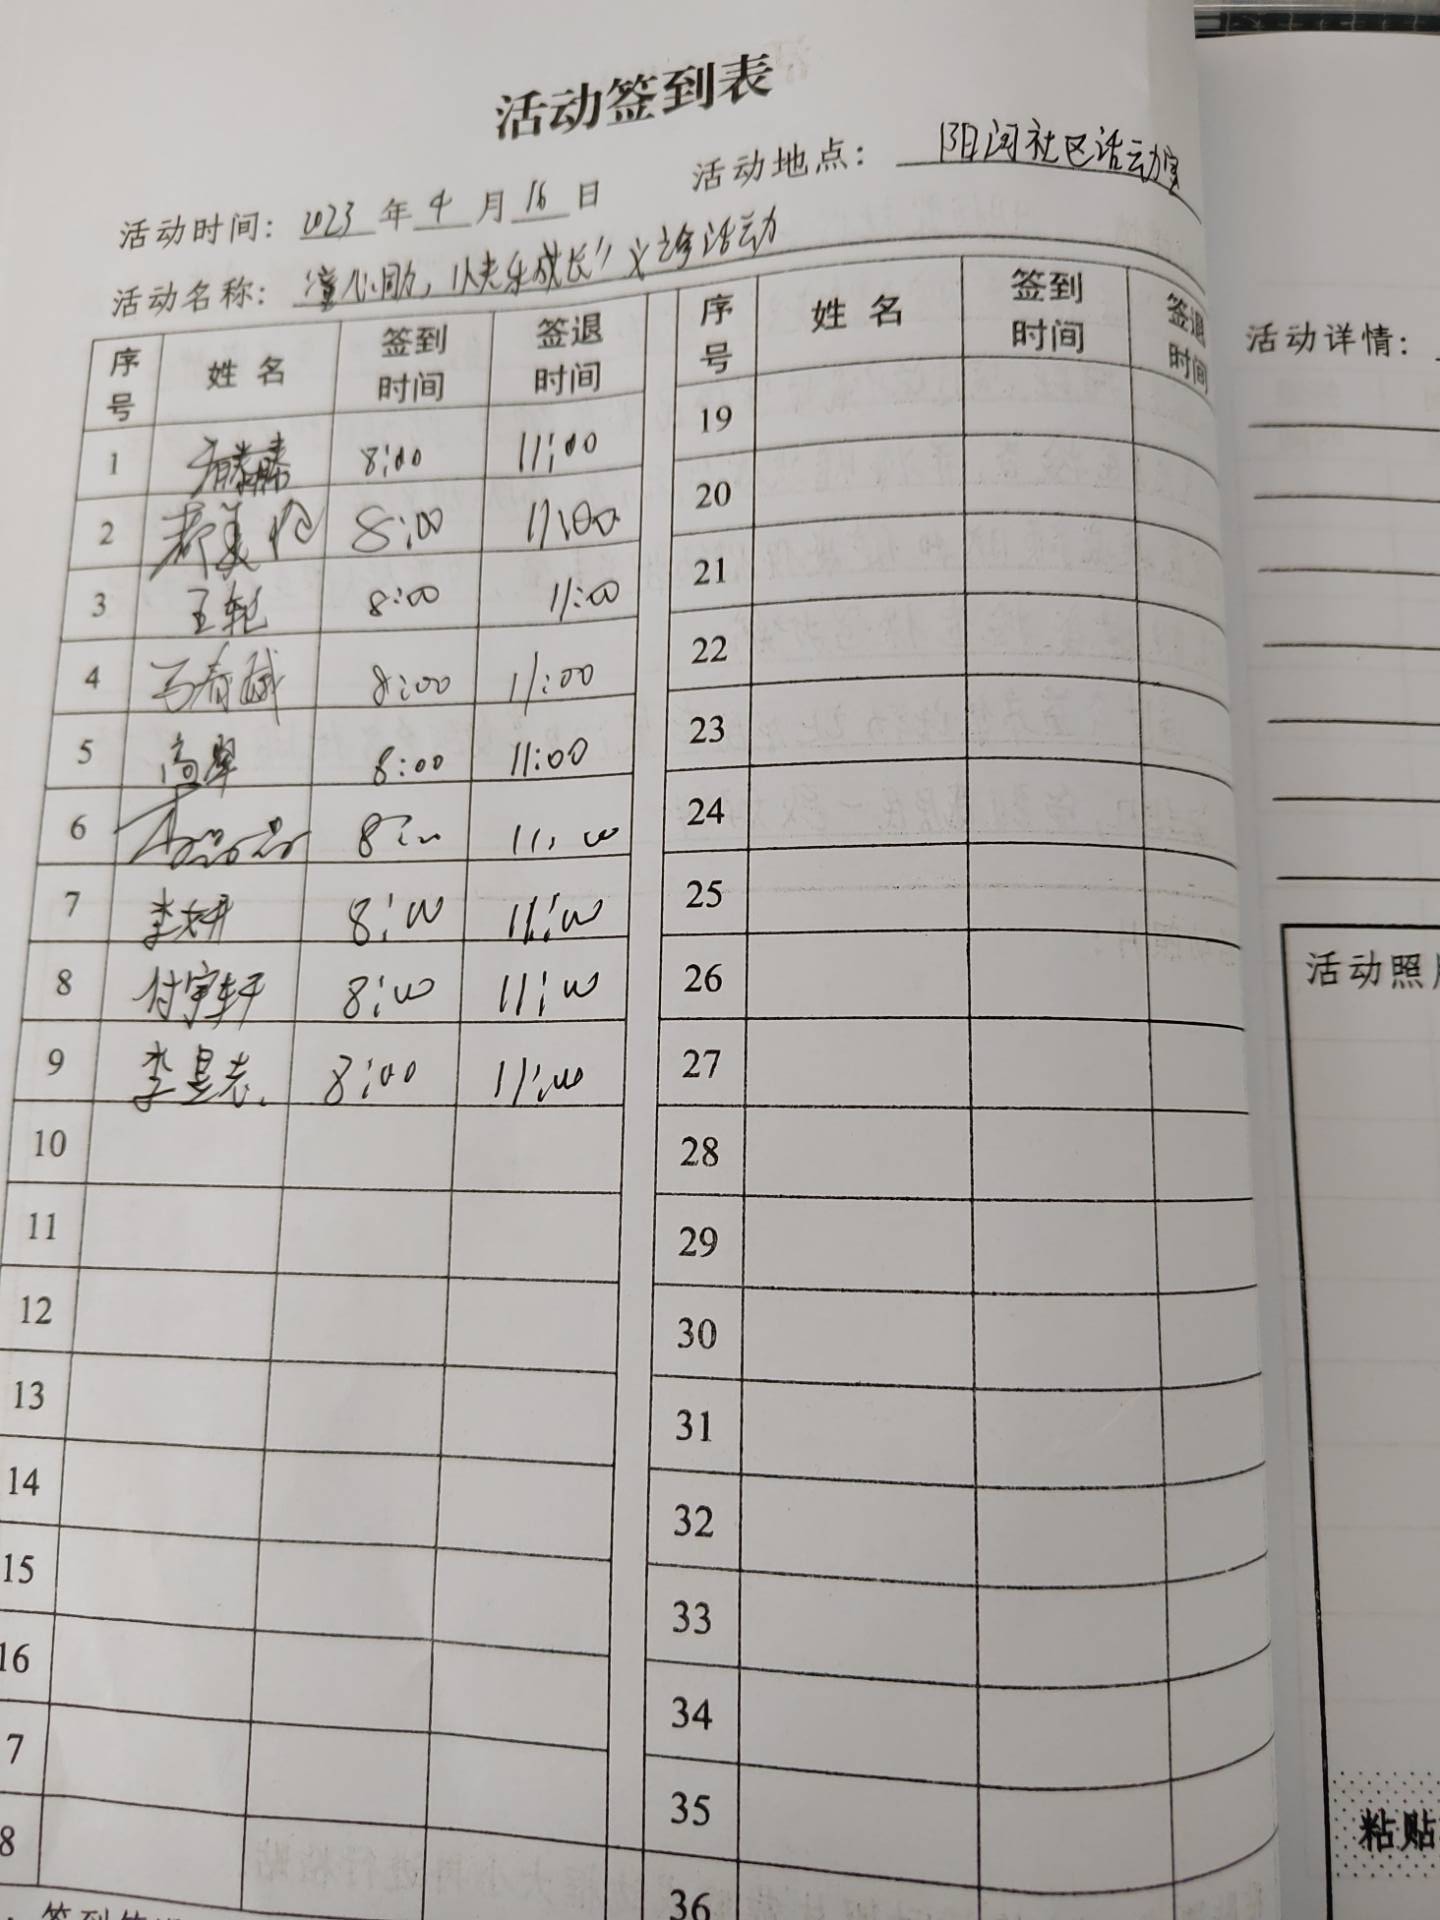 活动签到表
活动时间: 2023 年 4 月 16 日 活动地点: 社区活动室
活动名称: 快乐成长" 义诊活动
序号 姓名 签到时间 签退时间 序号 姓名 签到时间 签退时间
1 8:00 11:00 19
2 8:00 11:00 20
3 王轮 8:00 11:00 21
4 马春 8:00 11:00 22
5 高翠 8:00 11:00 23
6 8:00 11:00 24
7 李妍 8:00 11:00 25
8 付宇轩 8:00 11:00 26
9 李显志 8:00 11:00 27
10 28
11 29
12 30
13 31
14 32
15 33
16 34
7 35
8 36
活动详情:
活动照片
粘贴